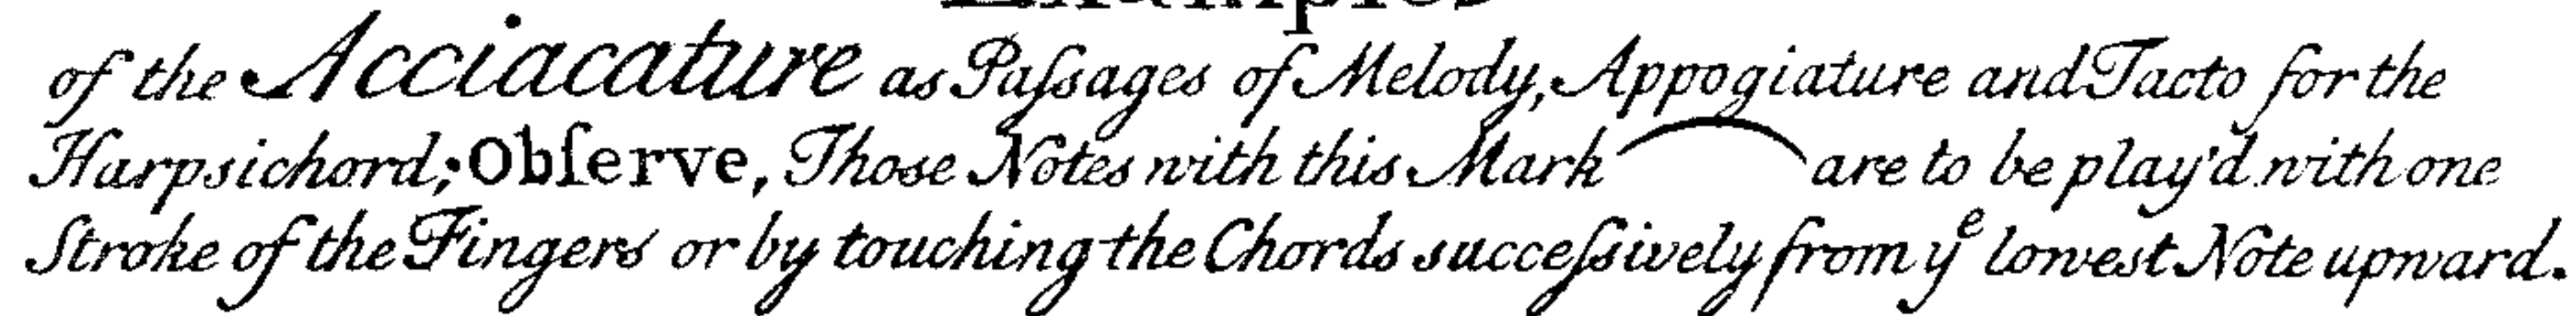 Examples
of the Acciacature as Paſsages of Melody, Appogiature and Tacto for the
Harpsichord; Obſerve, Those Notes with this Mark ⁀ are to be play'd with one
Stroke of the Fingers or by touching the Chords succeſsively from yᵉ lowest Note upward.